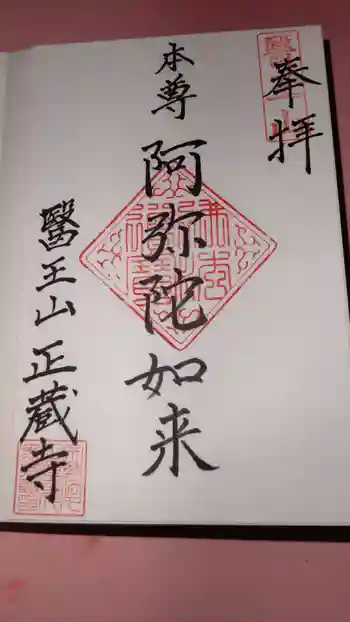 奉拝
本尊
阿弥陀如来
醫王山正蔵寺
醫王山